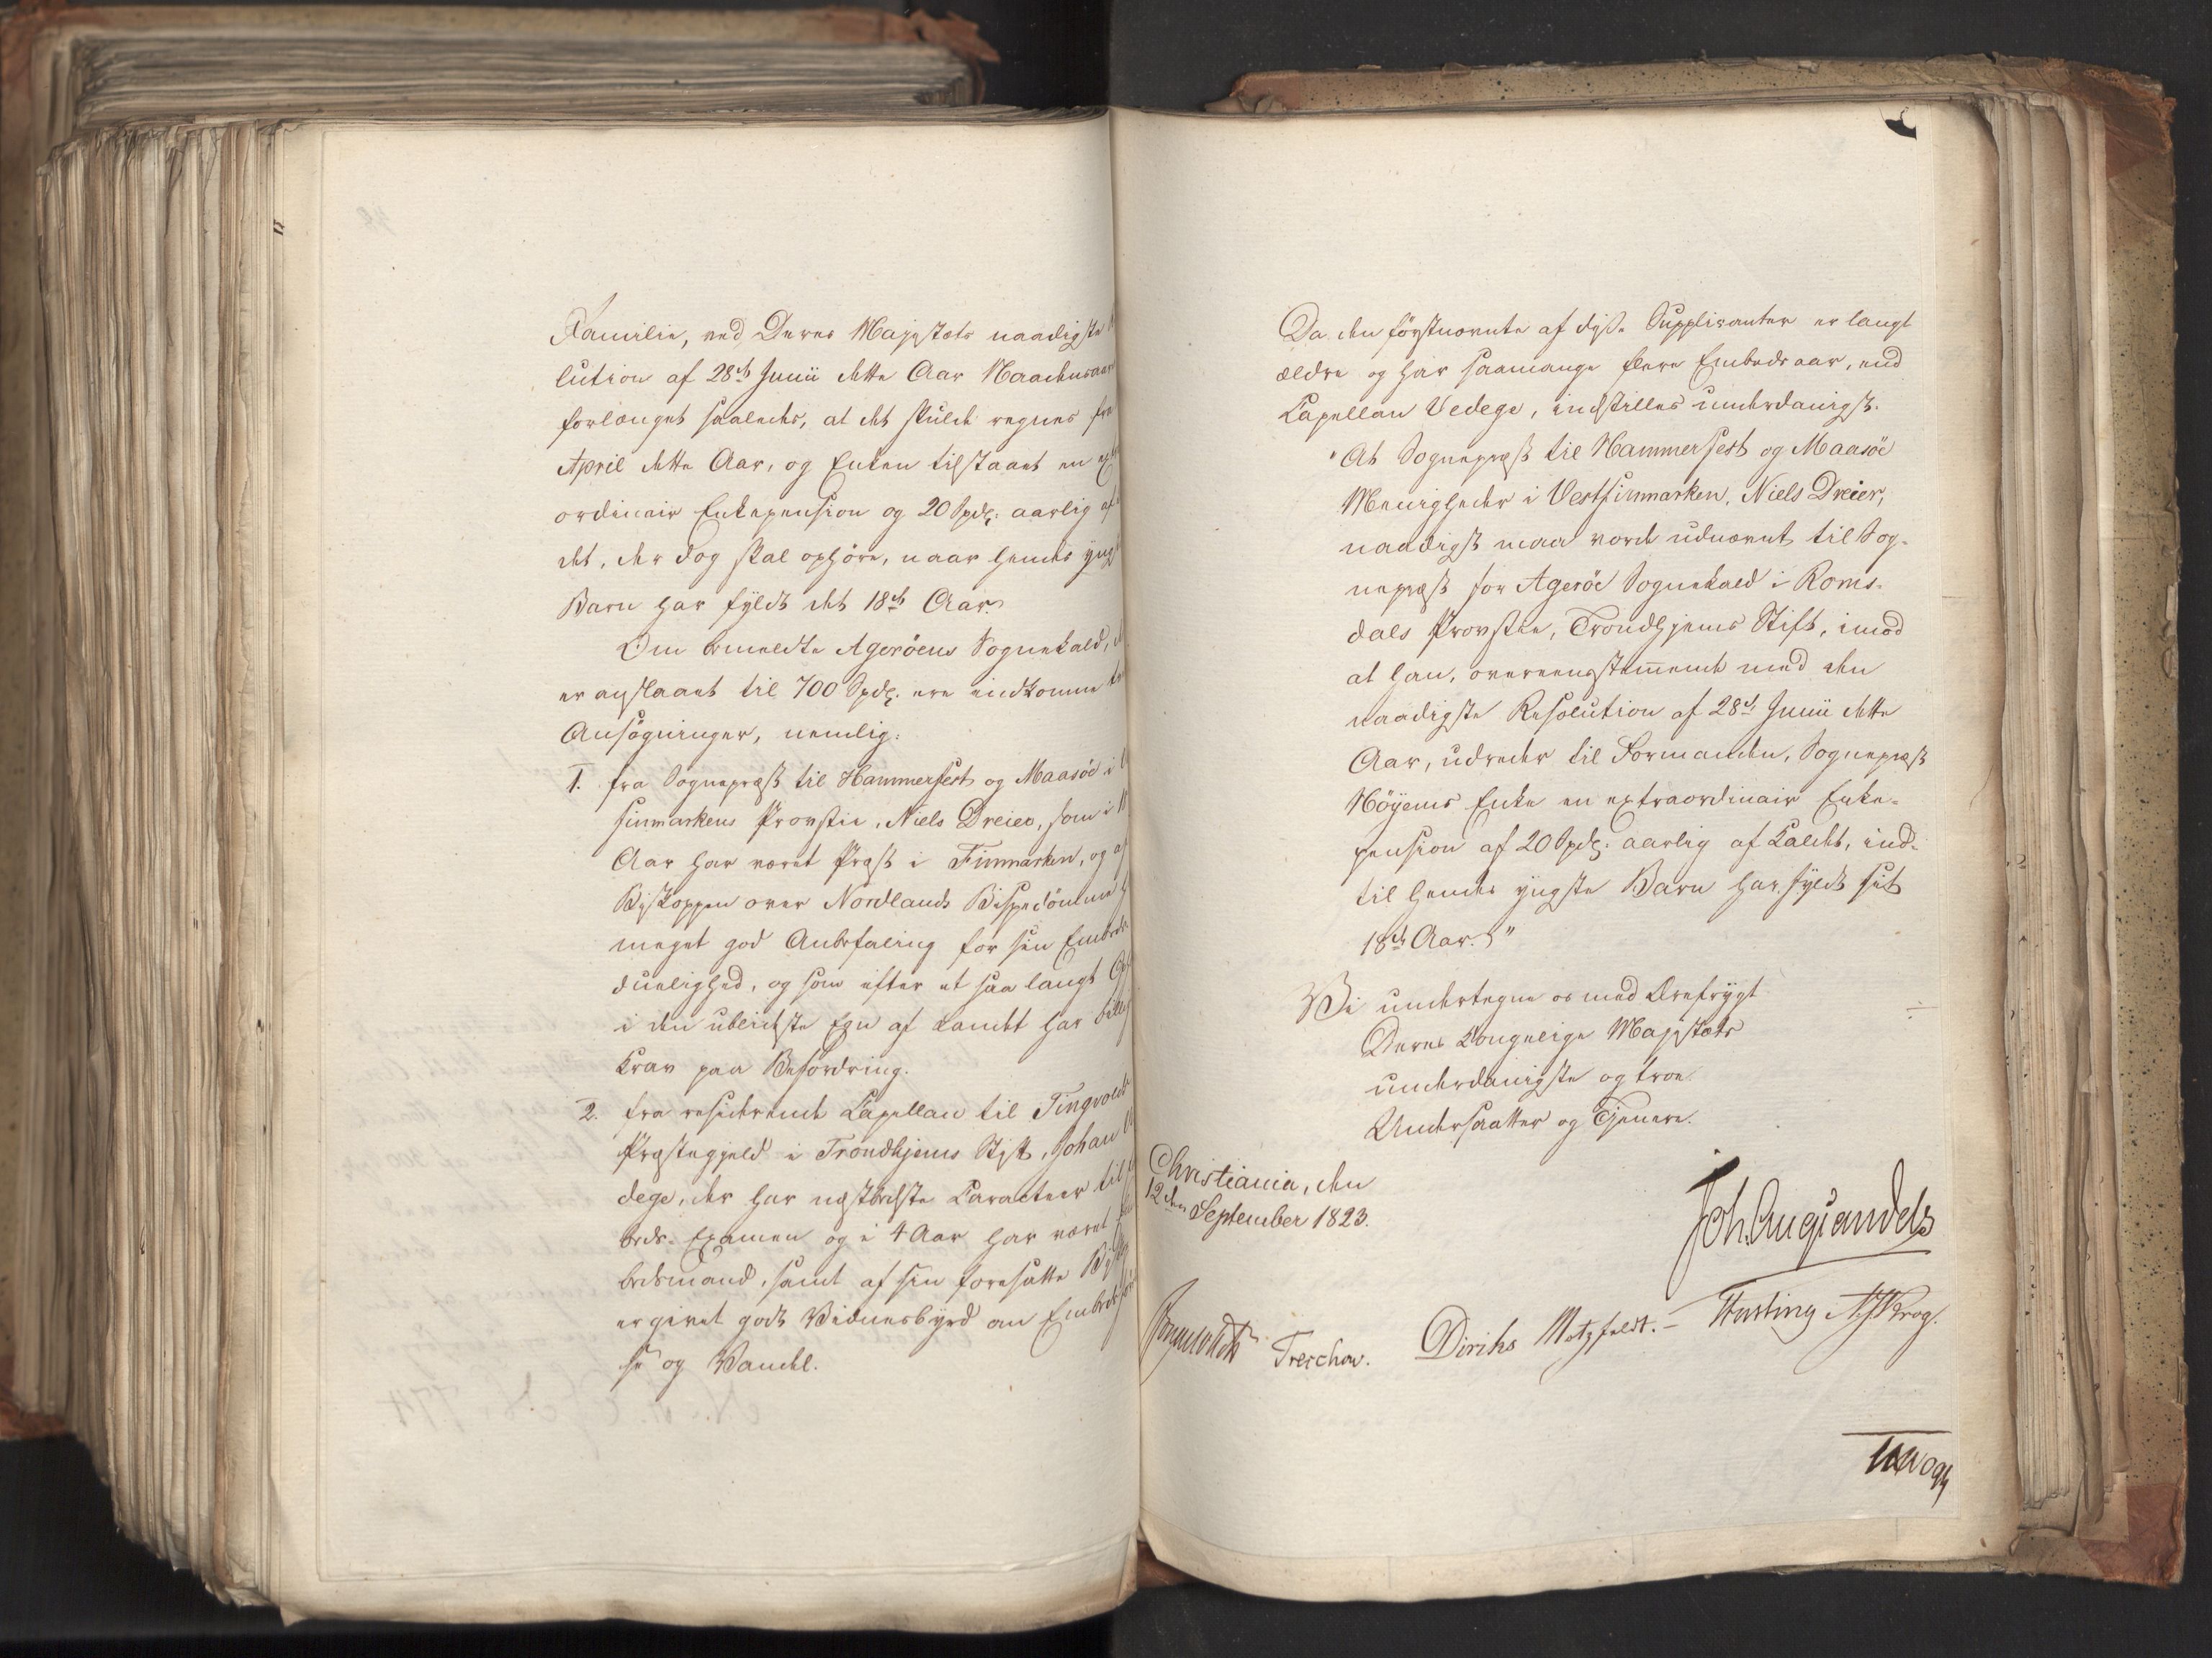 Familie, ved Deres Majestæts naadigste
lution af 28de Junii dette Aar Naadensaar
forlænget saaledes, at det skulde regnes fra
April dette Aar, og Enken tilstaaet en
ordinair Enkepension og 20 Spdlr. aarlig af
det, der dog skal ophöre, naar hendes
Barn har fyldt det 18de Aar.
Om bemeldte Ageröens Sognekald,
er anslaaet til 700 Spdlr. ere indkomne
Ansögninger, nemlig:
1. fra Sognepræst til Hammerfest og Maasöe i
finmarkens Provstie, Niels Dreier, som i
Aar har været Præst i Finmarken, og af
Biskoppen over Nordlands Bispedömme
meget god Anbefaling for sin Embeds-
duelighed, og som efter et saa langt
i den ublideste Egn af Landet har
Krav paa Befordring.
2. fra residerende Capellan til Tingvolds
Præstegjeld i Trondhjems Stift, Johan
dege, der har næstbedste Caracteer til
beds-Examen og i 4 Aar har været
bedsmand, samt af sin foresatte
er givet godt Vidnesbyrd om
se og Vandel.
Da den förstnævnte af disse Supplicanter er langt
ældre og har saamange flere Embeds aar, end
Capellan Vedege, indstilles underdanigst.
"At Sognepræst til Hammerfest og Maasöe
Menigheder i Vestfinmarken, Niels Dreier,
naadigst maa vorde udnævnt til Sog-
nepræst for Ageröe Sognekald i Roms-
dals Provstie, Trondhjems Stift, imod
at han, overeensstemmende med den
naadigste Resolution af 28de Junii dette
Aar, udreder til Formanden, Sognepræst
Höyems Enke en extraordinair Enke-
pension af 20 Spdlr. aarlig af Kaldet, ind-
til hendes yngste Barn har fyldt sit
18de Aar."
Vi undertegne os med Ærefrygt
Deres Kongelige Majestæts
underdanigste og troe
Undersaatter og Tjenere.
Christiania, den
12den September 1823.
Joh. Aug. Sandels
Sommerhielm Treschow. Diriks Motzfeldt. Fasting A. J. Krog.